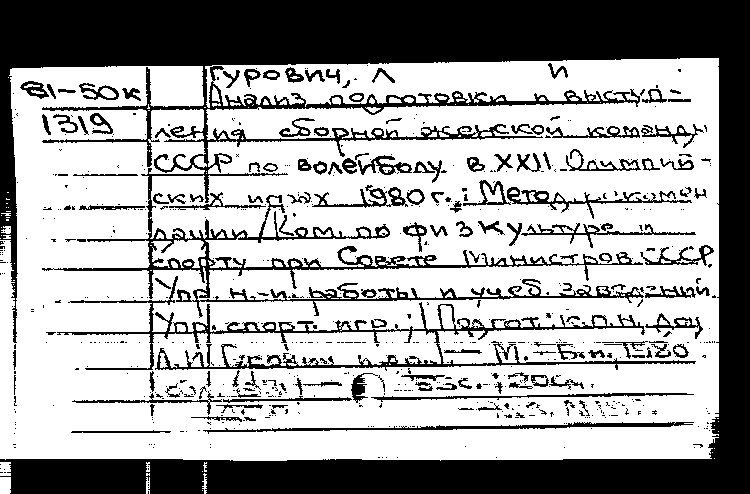 Гурович, Л И
81-50к Анализ подготовки и выступ-
1319 ления сборной женской команды
СССР по волейболу в XXII Олимпий-
ских играх 1980 г.: Метод. рекомен
дации / Ком. по физкультуре и
спорту при Совете Министров СССР
Упр. н.-и. работы и учеб. заведений
Упр. спорт. игр.; [Подгот.: к.п.н, доц
Л.И Гурович и др.] — М. - Б.и., 1980.
53с.; 20см.